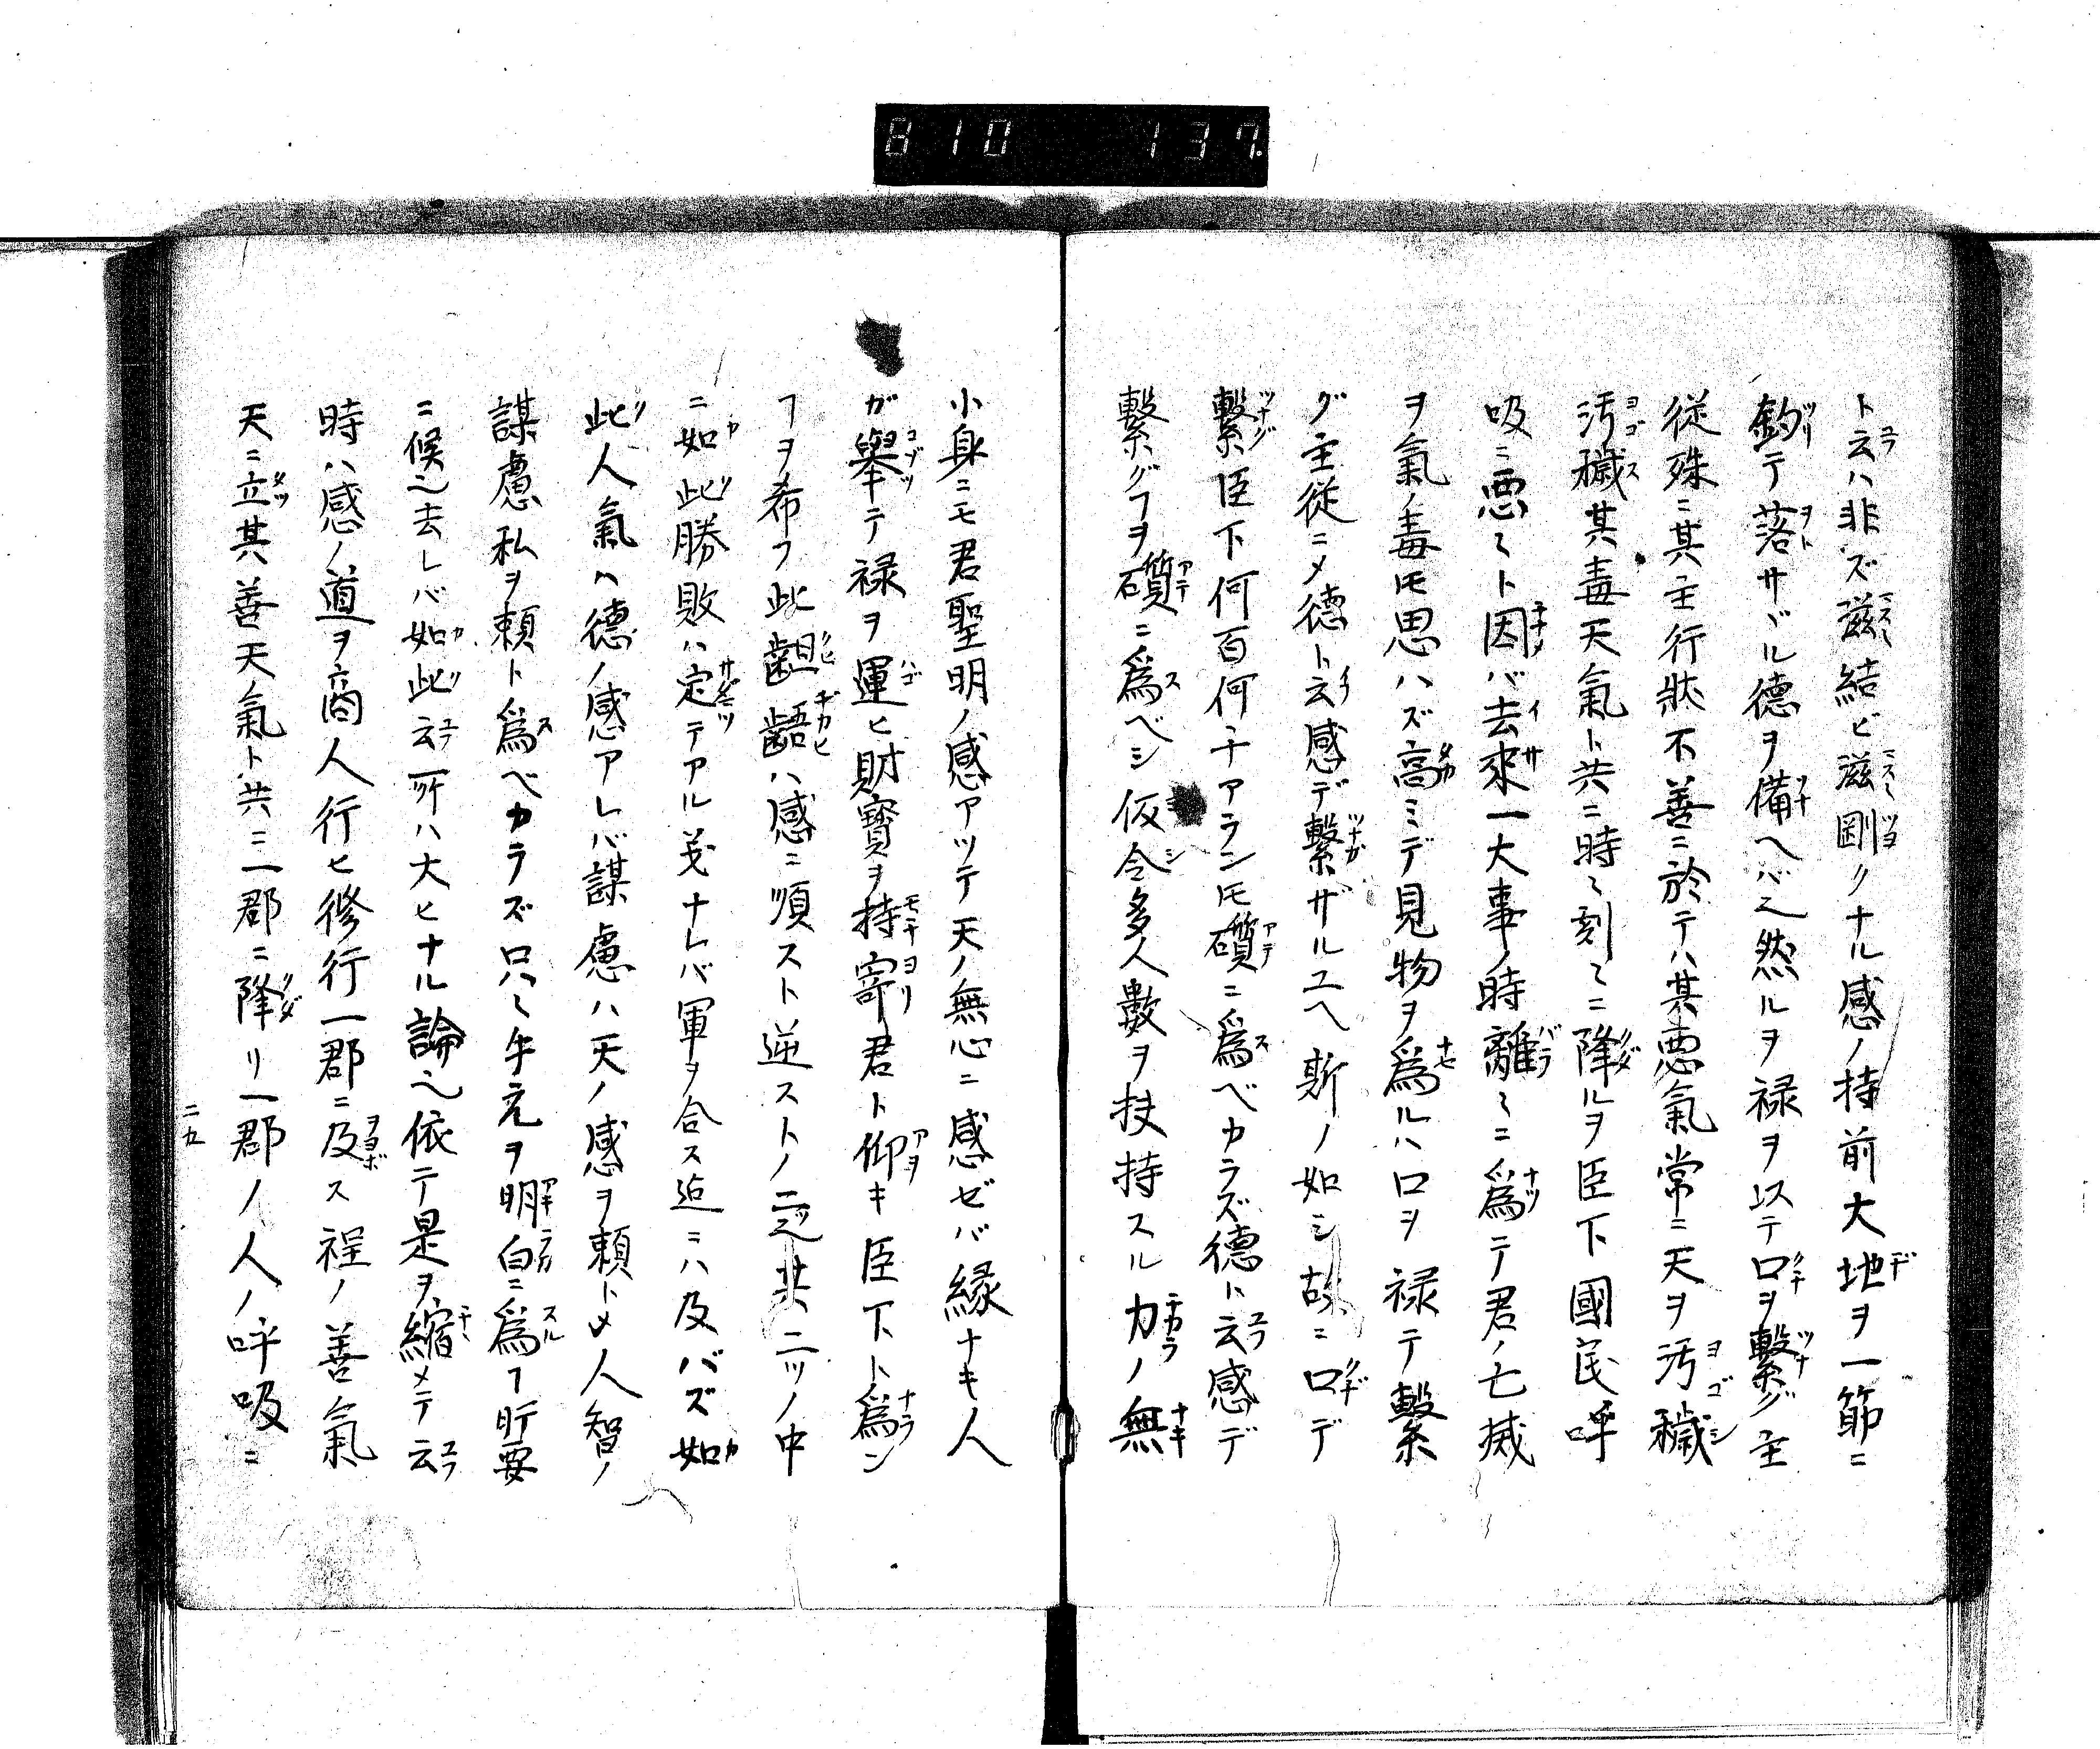 810 137.
ト云ハ非ズ滋結ビ滋剛クナル感ノ持前大地ヲ一節ニ
釣テ落サヾル徳ヲ備ヘバ之然ルヲ禄ヲ以テ口ヲ繋グ主
従殊ニ其主行状不善ニ於テハ其悪氣常ニ天ヲ汚穢
汚穢其毒天氣ト共ニ時〻刻〻ニ降ルヲ臣下國民呼
吸ニ悪〻ト因バ去來一大事ノ時離〻ニ爲テ君ノ亡滅
ヲ氣ノ毒トモ思ハズ高ミデ見物ヲ爲ルハ口ヲ禄テ繋
グ主従ニメ徳ト云感デ繋ザルユヘ斯ノ如シ故ニ口デ
繋臣下何百何千アランモ礩ニ爲ベカラズ徳ト云感デ
繋グヿヲ礩ニ爲ベシ仮令多人數ヲ扶持スル力ノ無
小身ニモ君聖明ノ感アツテ天ノ無心ニ感ゼバ縁ナキ人
ガ擧テ禄ヲ運ヒ財寳ヲ持寄君ト仰キ臣下ト爲ン
ヿヲ希フ此齟齬ハ感ニ順スト逆ストノ二ツ之其二ツノ中
ニ如此勝敗ハ定テアル義ナレバ軍ヲ合ス迠ニハ及バズ如
此人氣ハ德ノ感アレバ謀慮ハ天ノ感ヲ頼トメ人智ノ
謀慮私ヲ頼ト爲ベカラズ只〻手元ヲ明白ニ爲ヿ肝要
ニ候之去レバ如此云所ハ大ヒナル論之依テ是ヲ縮メテ云
時ハ感ノ道ヲ商人行ヒ修行一郡ニ及ス程ノ善氣
天ニ立其善天氣ト共ニ一郡ニ降リ一郡ノ人ノ呼吸ニ
二九